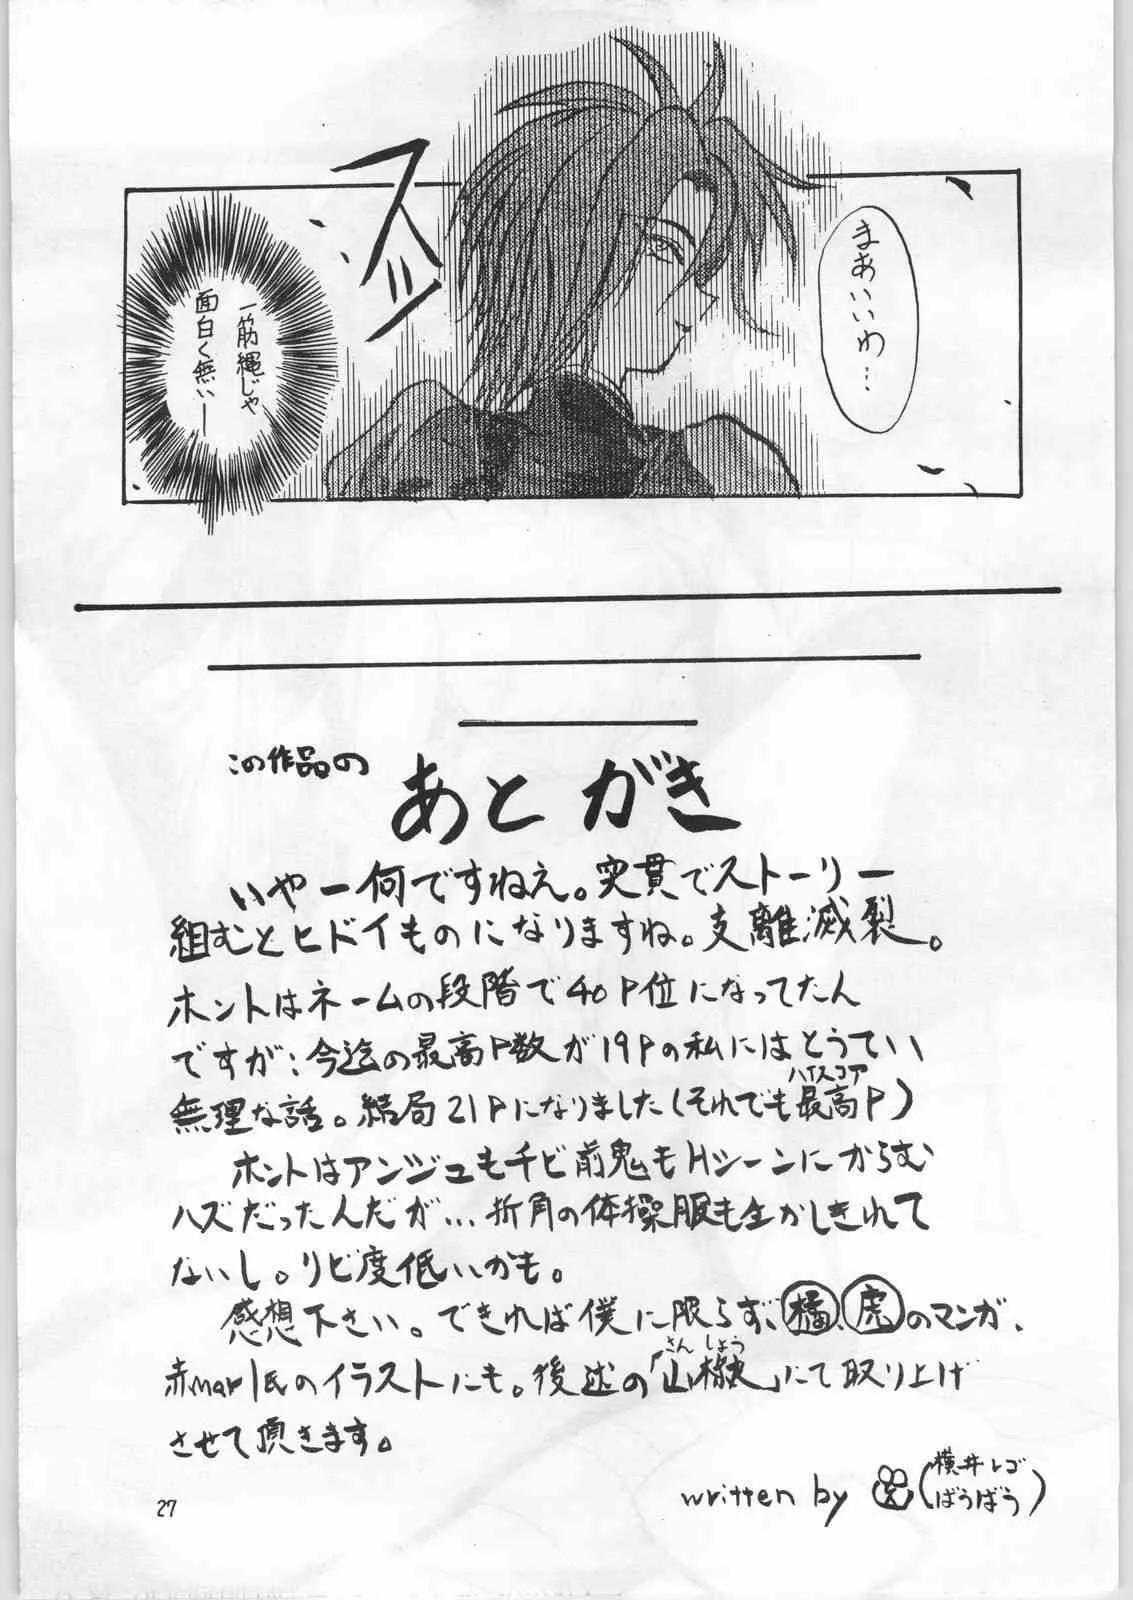 まあいいわ…
スッ
一筋縄じゃ
面白く無いー
この作品の
あとがき
いやー何ですねえ。突貫でストーリー
組むとヒドイものになりますね。支離滅裂。
ホントはネームの段階で40P位になってたん
ですが…今迄の最高P数が19Pの私にはとうてい
ハイスコア
無理な話。結局21Pになりました(それでも最高P)
ホントはアンジュもチビ前鬼もHシーンにからむ
ハズだったんだが…折角の体操服も生かしきれて
ないし。リビ度低いかも。
感想下さい。できれば僕に限らず、橘、虎のマンガ、
さんしょう
赤mar氏のイラストにも。後述の「山椒」にて取り上げ
させて頂きます。
written by
(横井レゴ
ばうばう)
27